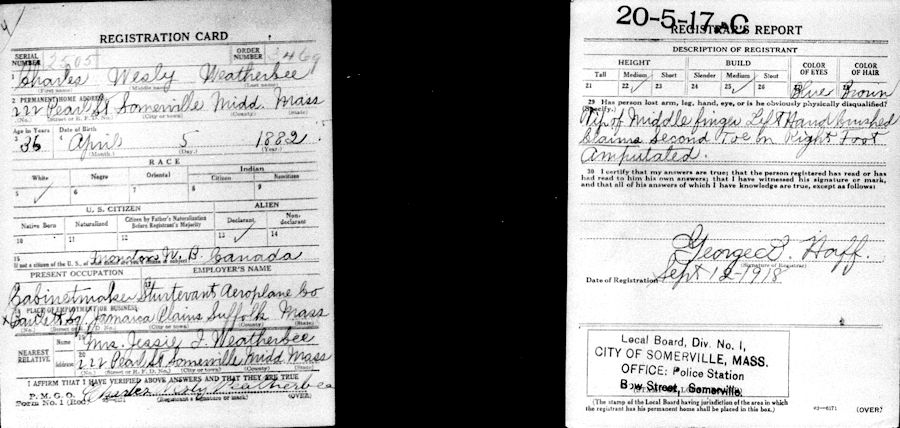 REGISTRATION CARD
SERIAL NUMBER 2505 ORDER NUMBER
1 Charles Wesly Weatherbee
(First name) (Middle name) (Last name)
2 PERMANENT HOME ADDRESS
222 Pearl St Somerville Midd. Mass
(No.) (Street or R. F. D. No.) (City or town) (County) (State)
Age in Years Date of Birth
3 36 4 April 5 1882
(Month.) (Day.) (Year.)
RACE
White Negro Oriental Indian
Citizen Noncitizen
5 ✓ 6 7 8 9
U. S. CITIZEN ALIEN
Native Born Naturalized Citizen by Father's Naturalization Before Registrant's Majority Declarant Non-declarant
10 11 12 13 ✓ 14
15 Moncton N. B. Canada
If not a citizen of the U. S.,
PRESENT OCCUPATION EMPLOYER'S NAME
Cabinetmaker Sturtevant Aeroplane Co
18 PLACE OF EMPLOYMENT OR BUSINESS
Jamaica Plains Suffolk Mass
(No.) (Street or R. F. D. No.) (City or town) (County) (State)
NEAREST RELATIVE
Name 19 Mrs. Jessie F. Weatherbee
Address 20 222 Pearl St Somerville Midd Mass
(No.) (Street or R. F. D. No.) (City or town) (County) (State)
I AFFIRM THAT I HAVE VERIFIED ABOVE ANSWERS AND THAT THEY ARE TRUE
P. M. G. O.
Form No. 1 (Red) Charles Wesly Weatherbee
(Registrant's signature or mark) (OVER)
20-5-17 C
REGISTRAR'S REPORT
DESCRIPTION OF REGISTRANT
HEIGHT BUILD COLOR OF EYES COLOR OF HAIR
Tall Medium Short Slender Medium Stout
21 22 ✓ 23 24 25 ✓ 26 27 Blue 28 Brown
29 Has person lost arm, leg, hand, eye, or is he obviously physically disqualified?
(Specify.)
Tip of Middle finger Left Hand Crushed
Claims Second Toe on Right Foot
Amputated.
30 I certify that my answers are true; that the person registered has read or has
had read to him his own answers; that I have witnessed his signature or mark,
and that all of his answers of which I have knowledge are true, except as follows:
George S. Hoff.
(Signature of Registrar)
Date of Registration Sept 12-1918
Local Board, Div. No. 1,
CITY OF SOMERVILLE, MASS.
OFFICE: Police Station
Bow Street, Somerville.
(The stamp of the Local Board having jurisdiction of the area in which
the registrant has his permanent home shall be placed in this box.)
03—6171 (OVER)